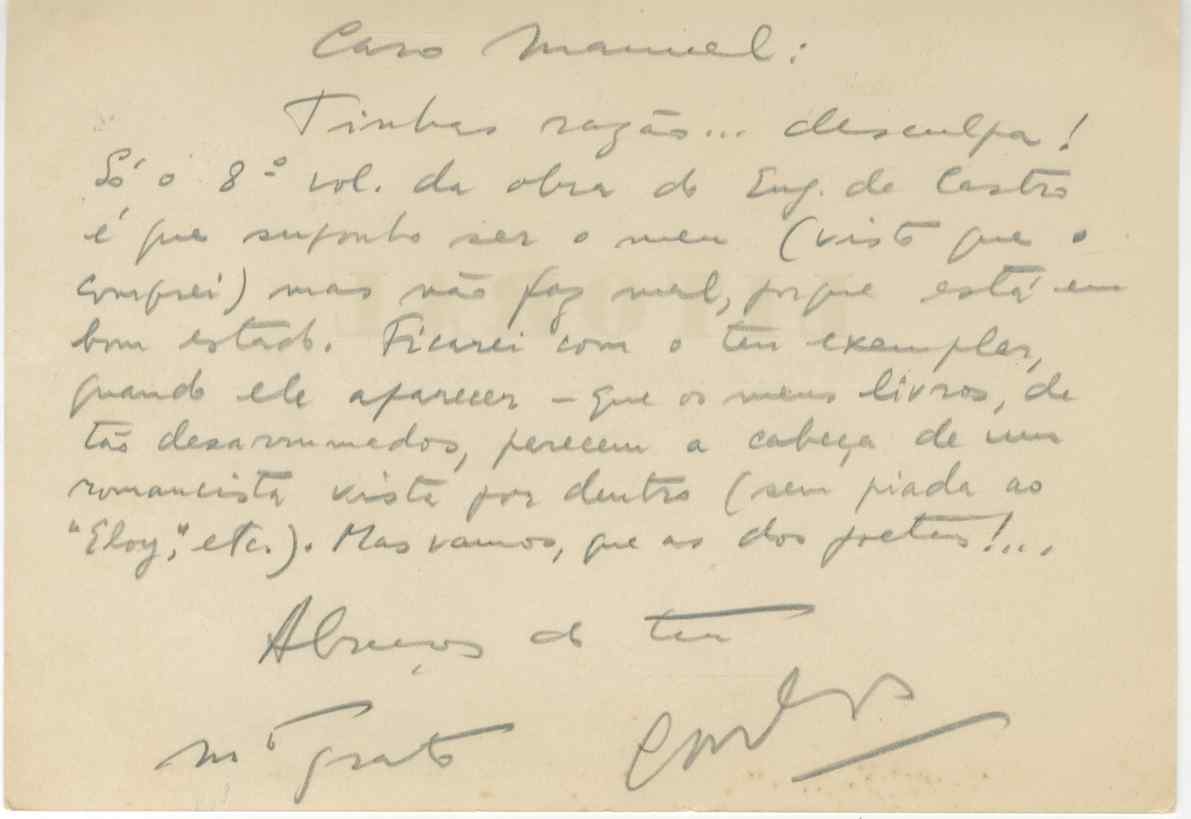 Caro Manuel:
Tinhas razão... desculpa!
Só o 8º vol. da obra do Eug. de Castro
é que suponho ser o meu (visto que o
comprei) mas não faz mal, porque está em
bom estado. Ficarei com o teu exemplar,
quando ele aparecer – que os meus livros, de
tão desarrumados, parecem a cabeça de um
romancista vista por dentro (sem piada ao
"Eloy", etc.). Mas vamos, que as dos poetas!...
Abraços do teu
mº grato